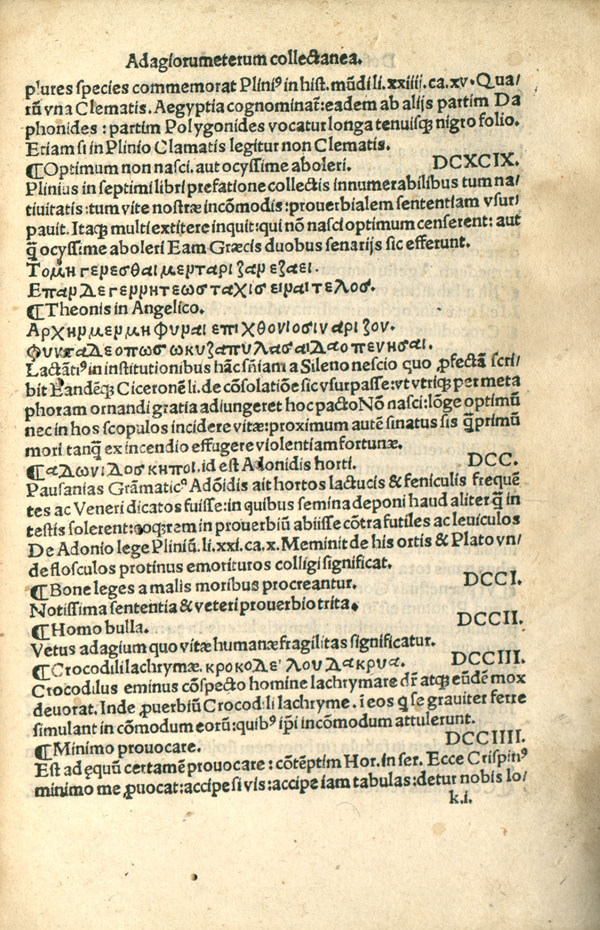 Adagiorumeterum collectanea.
plures species commemorat Pliniꝰ in hist. mũdi li. xxiiii. ca. xv. Qua/
rũ vna Clematis. Aegyptia cognominat̃: eadem ab alijs partim Da
phonides: partim Polygonides vocatur longa tenuisq; nigro folio.
Etiam si in Plinio Clamatis legitur non Clematis.
¶Optimum non nasci. aut ocyssime aboleri. DCXCIX.
Plinius in septimi libri prefatione collectis innumerabilibus tum na/
tiuitatis: tum vite nostræ incõmodis: prouerbialem sententiam vsur/
pauit. Itaq; multi extitere inquit: qui nõ nasci optimum censerent: aut
q̃ ocyssime aboleri Eam Græcis duobus senarijs sic efferunt.
Τομη γερεσθαι μερταρι ζαρεζαει.
Επαρ Δε γερρητεωσ ταχισ ειραι τελοσ.
¶Theonis in Angelico.
Αρχημ μερ μη Φυραι επιχθονιοσιν αριζον.
Φυντα Δε οπωσ ωκυζα πυλασ αιΔαο πενησαι.
Lactãtiꝰ in institutionibus hãc sñiam a Sileno nescio quo ꝓfectã scri/
bit Eandẽq; Ciceronẽ li. de cõsolatiõe sic vsurpasse: vt vtriq; per meta
phoram ornandi gratia adiungeret hoc pacto Nõ nasci: lõge optimũ
nec in hos scopulos incidere vitæ: proximum autẽ si natus sis q̃primũ
mori tanq̃ ex incendio effugere violentiam fortunæ.
¶αΔωνιΔοσ κηποι. id est Adonidis horti. DCC.
Pausanias Grãmaticꝰ Adõidis ait hortos lactucis & feniculis frequẽ
tes ac Veneri dicatos fuisse: in quibus semina deponi haud aliter q̃ in
testis solerent: eoq; rem in prouerbiũ abiisse cõtra futiles ac leuiculos
De Adonio lege Pliniũ. li. xxi. ca. x. Meminit de his ortis & Plato vn/
de flosculos protinus emorituros colligi significat.
¶Bone leges a malis moribus procreantur. DCCI.
Notissima sententia & veteri prouerbio trita.
¶Homo bulla. DCCII.
Vetus adagium quo vitæ humanæ fragilitas significatur.
¶Crocodili lachrymæ. κροκοΔε' λου Δακρυα. DCCIII.
Crocodilus eminus cõspecto homine lachrymare dr̃ atq; eũdẽ mox
deuorat. Inde ꝓuerbiũ Crocodili lachryme. ĩ eos q̃ se grauiter ferre
simulant incõmodum eorũ: quibꝰ ip̃i incõmodum attulerunt.
¶Minimo prouocare. DCCIIII.
Est ad equũ certamẽ prouocare: cõtẽptim Hor. in ser. Ecce Crispinꝰ
minimo me ꝓuocat: accipe si vis: accipe iam tabulas: detur nobis lo/
k.i.